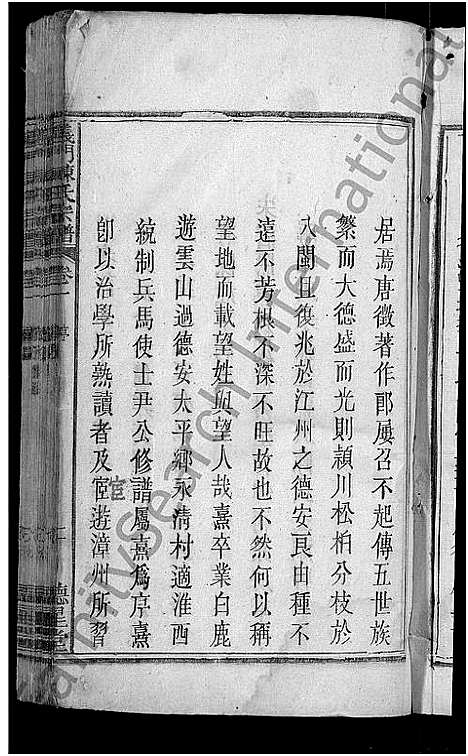 居焉唐徵著作郎屢召不起傳五世族
繁而大德盛而光則頴川松柏分枝於
八閩且復兆於江州之德安良由種不
遠不芳根不深不旺故也不然何以稱
望地而載望姓與望人哉熹卒業白鹿
遊雲山過德安太平鄉永清村適淮西
統制兵馬使士尹公修譜屬熹爲序熹
卽以治學所熟讀者及宦遊漳州所習
宦
義門陳氏宗譜 卷一
德星堂
FamilySearch International